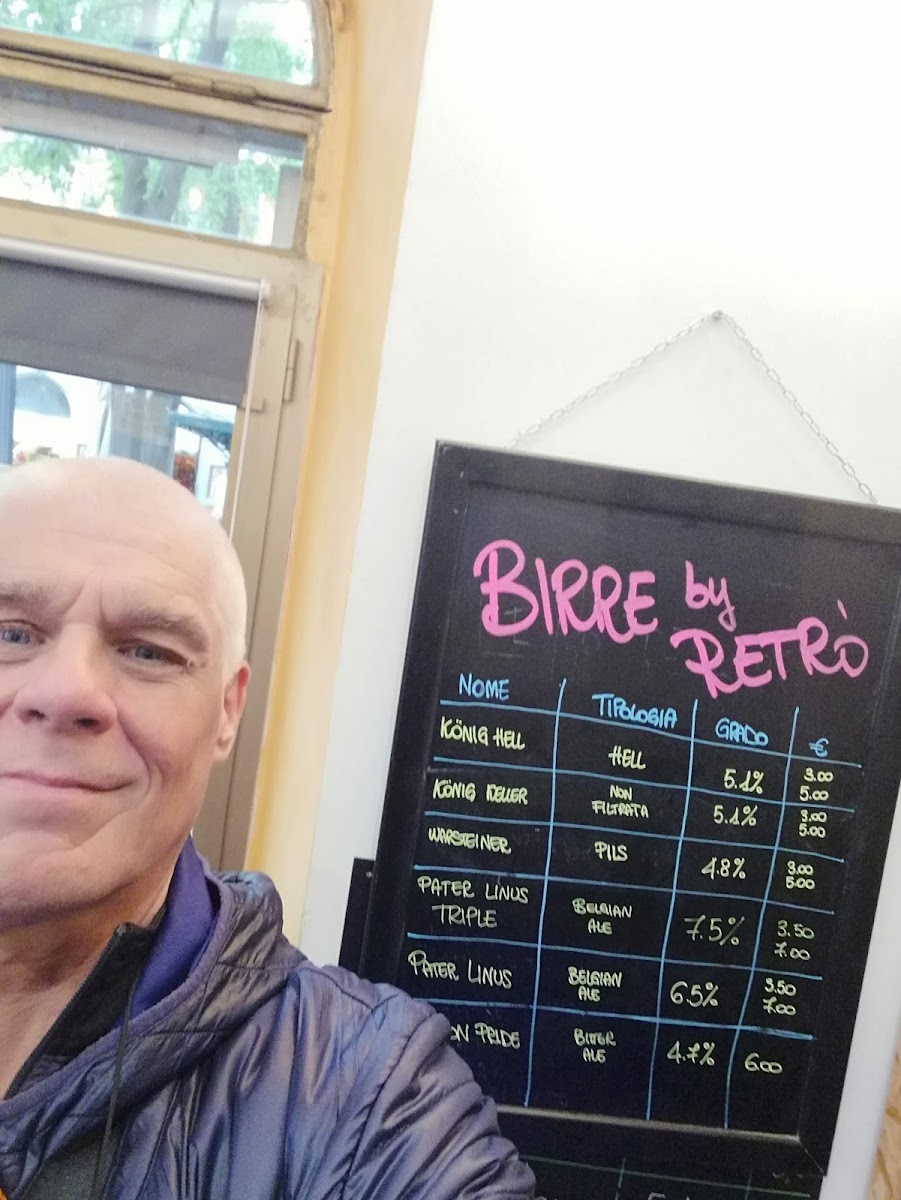 BIRRE by
RETRÒ
NOME TIPOLOGIA GRADO €
KÖNIG HELL HELL 5.1% 3.00
5.00
KÖNIG KELLER NON
FILTRATA 5.1% 3.00
5.00
WARSTEINER PILS 4.8% 3.00
5.00
PATER LINUS
TRIPLE BELGIAN
ALE 7.5% 3.50
7.00
PATER LINUS BELGIAN
ALE 6.5% 3.50
7.00
ON PRIDE BITTER
ALE 4.7% 6.00